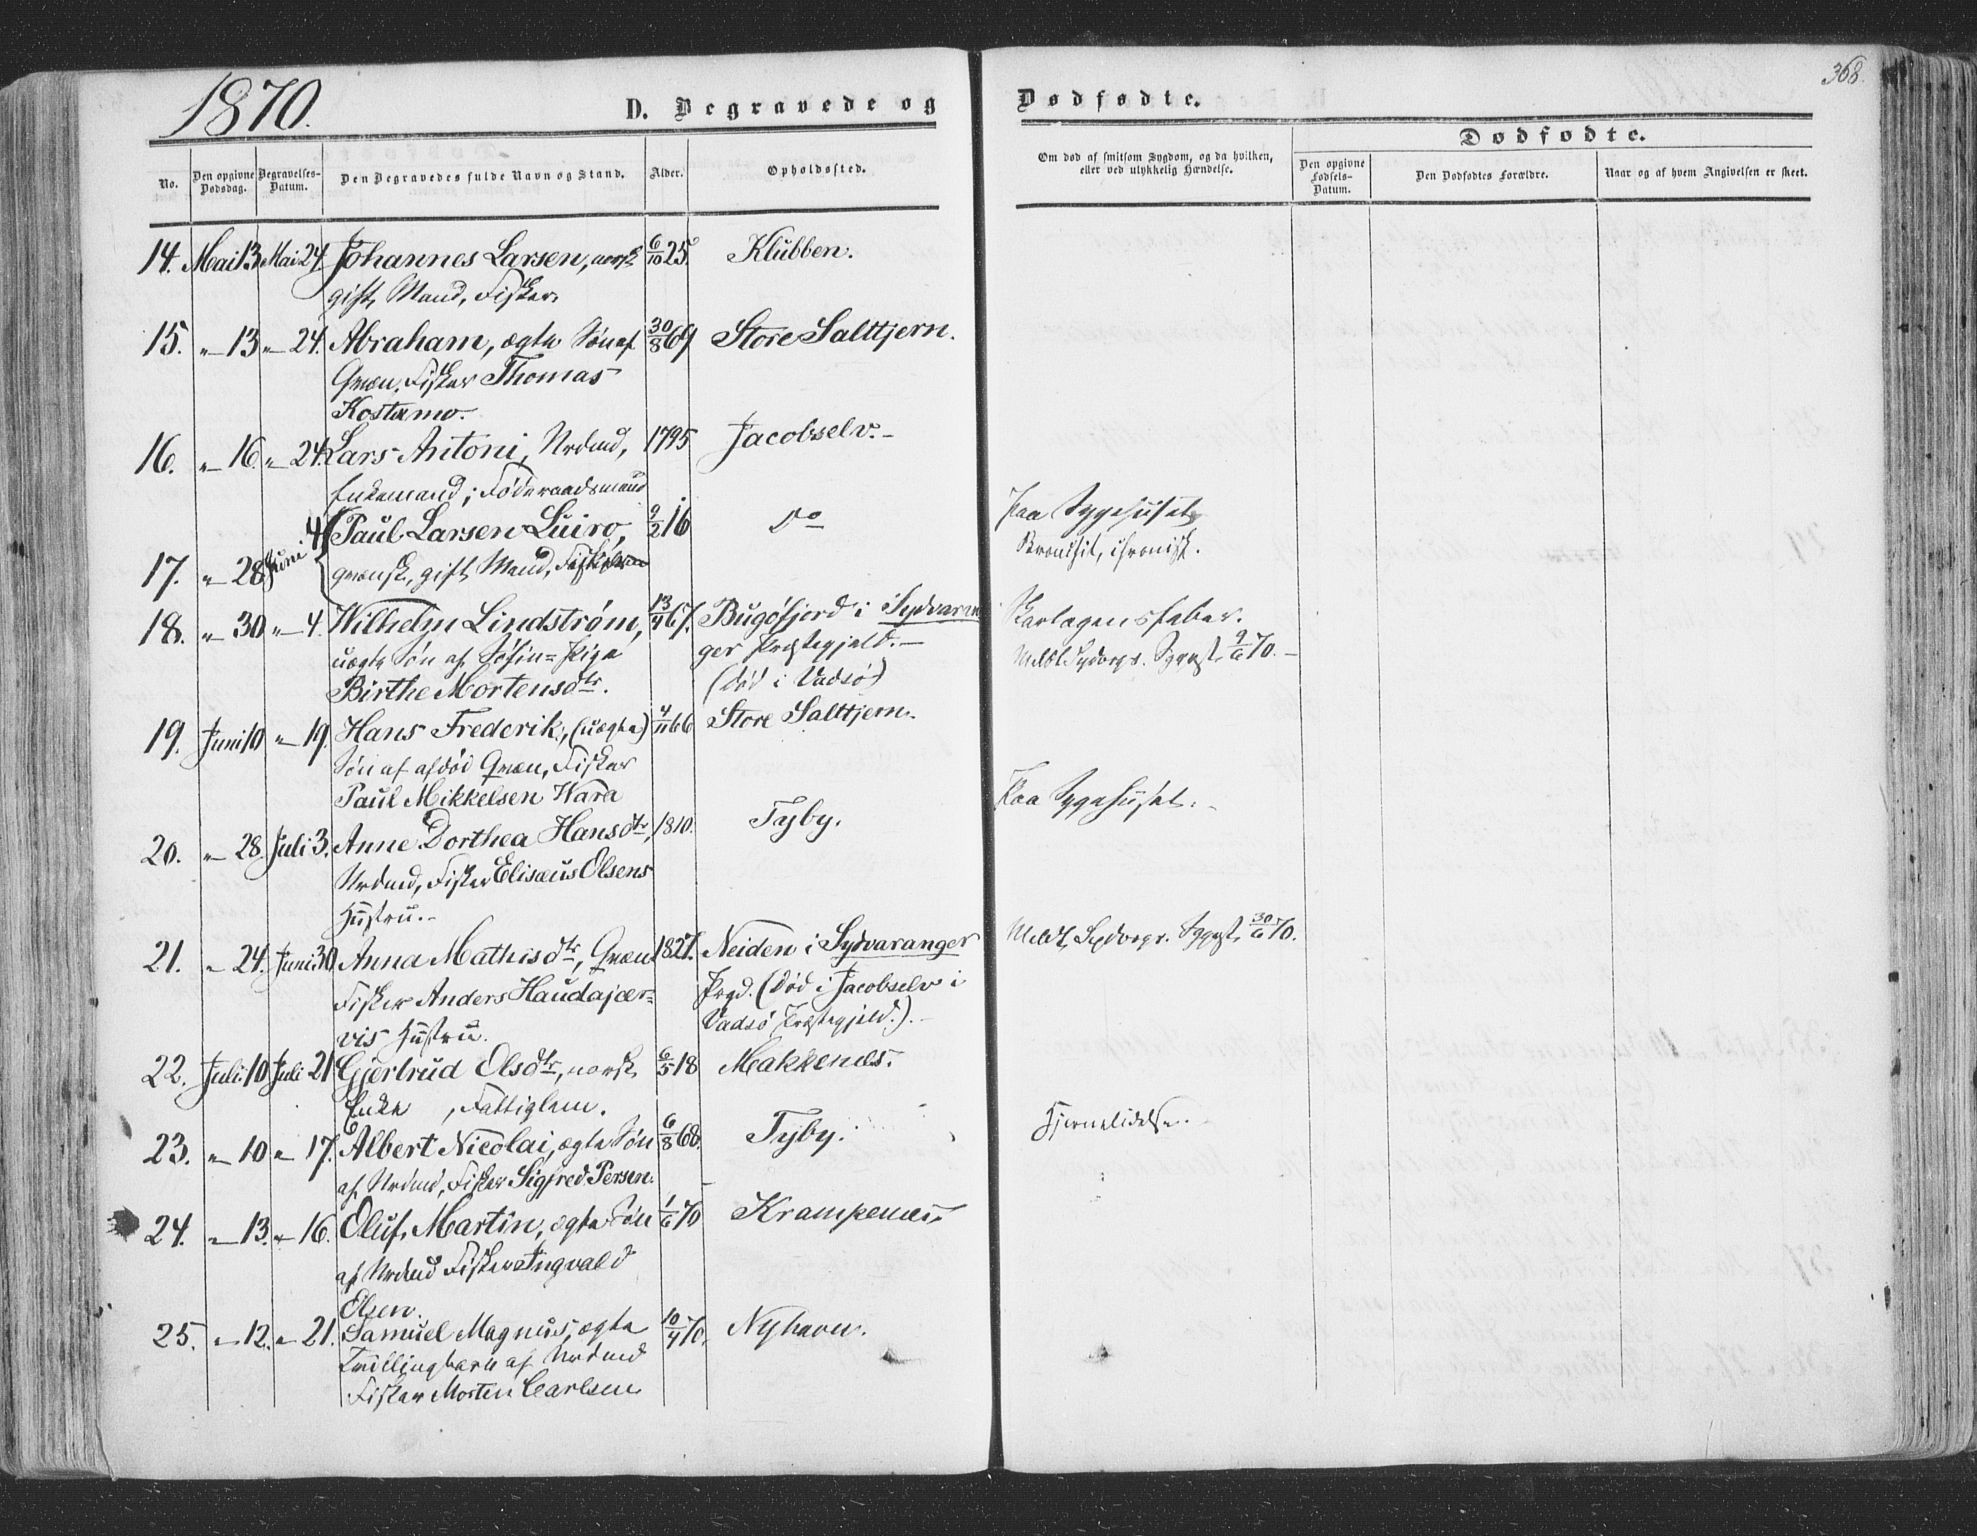 1870.
368.
D. Begravede og Dødfødte.
Dødfødte.
No.
Den opgivne Dødsdag.
Begravelses-Datum.
Den Begravedes fulde Navn og Stand.
Alder.
Opholdssted.
Om død af smitsom Sygdom, og da hvilken, eller ved ulykkelig Hændelse.
Den opgivne Fødsels-Datum.
Den Dødfødtes Forældre.
Naar og af hvem Angivelsen er skeet.
14. Mai 13. Mai 24. Johannes Larsen, norsk 6/10 25. Klubben.
gift Mand, Fisker
15. " 13 " 24. Abraham, ægte Søn af 30/8 69 Store Salttjern.
Qvæn, Fisker Thomas
Kostamo.
16. " 16 " 24. Lars Antoni, Nrdmd, 1795 Jacobselv.
Enkemand; Føderaadsmand
17. " 28 Juni 4 Paul Larsen Luiro, 9/2 16 Do Paa Sygehuset
qvænsk, gift Mand, Fisker
18. " 30 " 4. Wilhelm Lindstrøm, 13/4 67. Bugøfjord i Sydvaran Skarlagensfeber.
uægte Søn af Søfin-Pige ger Præstegjeld. Meldt Sydvrgr. Sygpst. 9/6 70.
Birthe Mortensdtr. (død i Vadsø)
19. Juni 10 " 19. Hans Frederik, (uægte) 4/11 66 Store Salttjern.
Søn af afdød Qvæn, Fisker
Paul Mikkelsen Wara
20. " 28. Juli 3. Anne Dorthea Hansdtr, 1810. Tyby. Paa Sygehuset.
Nrdmd, Fisker Elisæus Olsens
Hustru.
21. " 24. Juni 30 Anna Mathisdtr, Qvæn 1827. Neiden i Sydvaranger Meldt Sydvrgr. Sygpst. 30/6 70.
Fisker Anders Haudajær- Prgd. (Død i Jacobselv i
vis Hustru. Vadsø Præstegjeld.).
22. Juli 10 Juli 21 Gjertrud Olsdtr, norsk 6/5 18 Makkenæs.
Enke, Fattiglem.
23. " 10 " 17. Albert Nicolai, ægte Søn 6/8 68. Tyby. Hjernelidelse.
af Nrdmd, Fisker Sigfred Persen.
24. " 13. " 16. Oluf Martin, ægte Søn 1/6 70 Krampenæs.
af Nrdmd Fisker Ingvald
Olsen.
25. " 12. " 21. Samuel Magnus, ægte 10/4 70. Nyhavn.
Trillingbarn af Nrdmd
Fisker Morten Carlsen